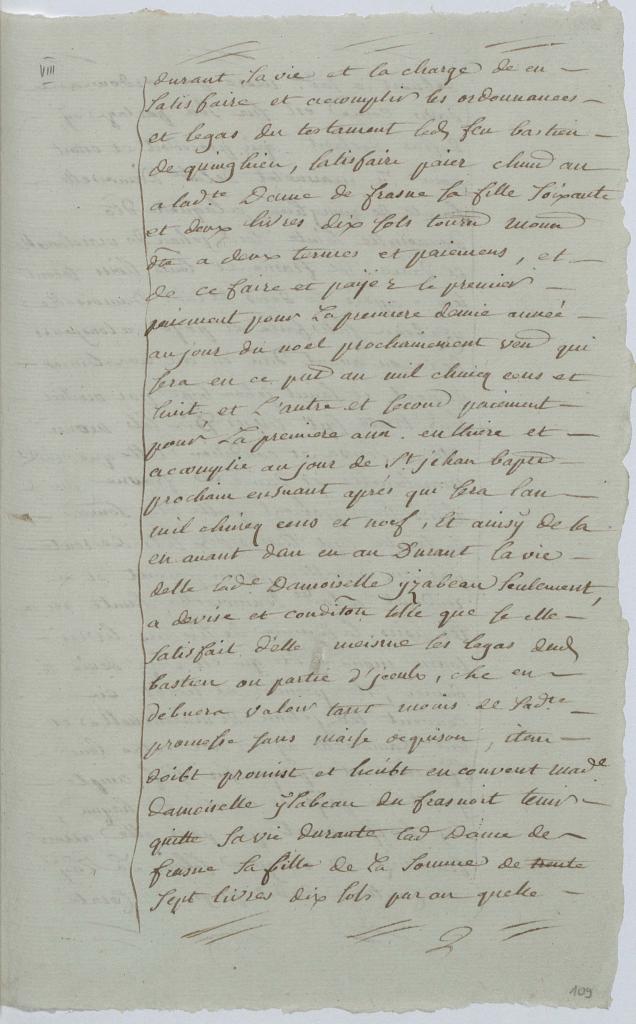 VIII
durant sa vie et la charge de en —
satisfaire et accomplir les ordonnances —
et legas du testament led. feu bastien —
de quinghien, satisfaire paier chun an
a lad.te Dame de frasne sa fille Soixante
et deux livres dix sols tourn monn
dta a deux termes et paiemens, et —
de ce faire et payer le premier —
paiement pour La premiere demie année —
au jour du noel prochainement ven qui
sera en ce pnt an mil chincq cens et
huit, et L'autre et second paiement —
pour La premiere ann. enthiere et —
accomplie au jour de St jehan bapte —
prochain ensuant après qui sera lan —
mil chincq cens et noef, Et ainsy de la
en avant dan en an Durant la vie —
delle lad.e Damoiselle yzabeau seulement,
a devise et condiťon telle que se elle —
satisfait d'elle meisme les legas dud
bastien ou partie d'jceulx, che en —
debuera valoir tant moins de lad.te —
promesse sans malse oquison, item —
doibt promist et heubt en couvent mad.e
damoiselle ysabeau du fresnoit tenir —
quitte sa vie durante lad Dame de —
frasne sa fille de La somme de trente
sept livres dix sols par an quelle —
109